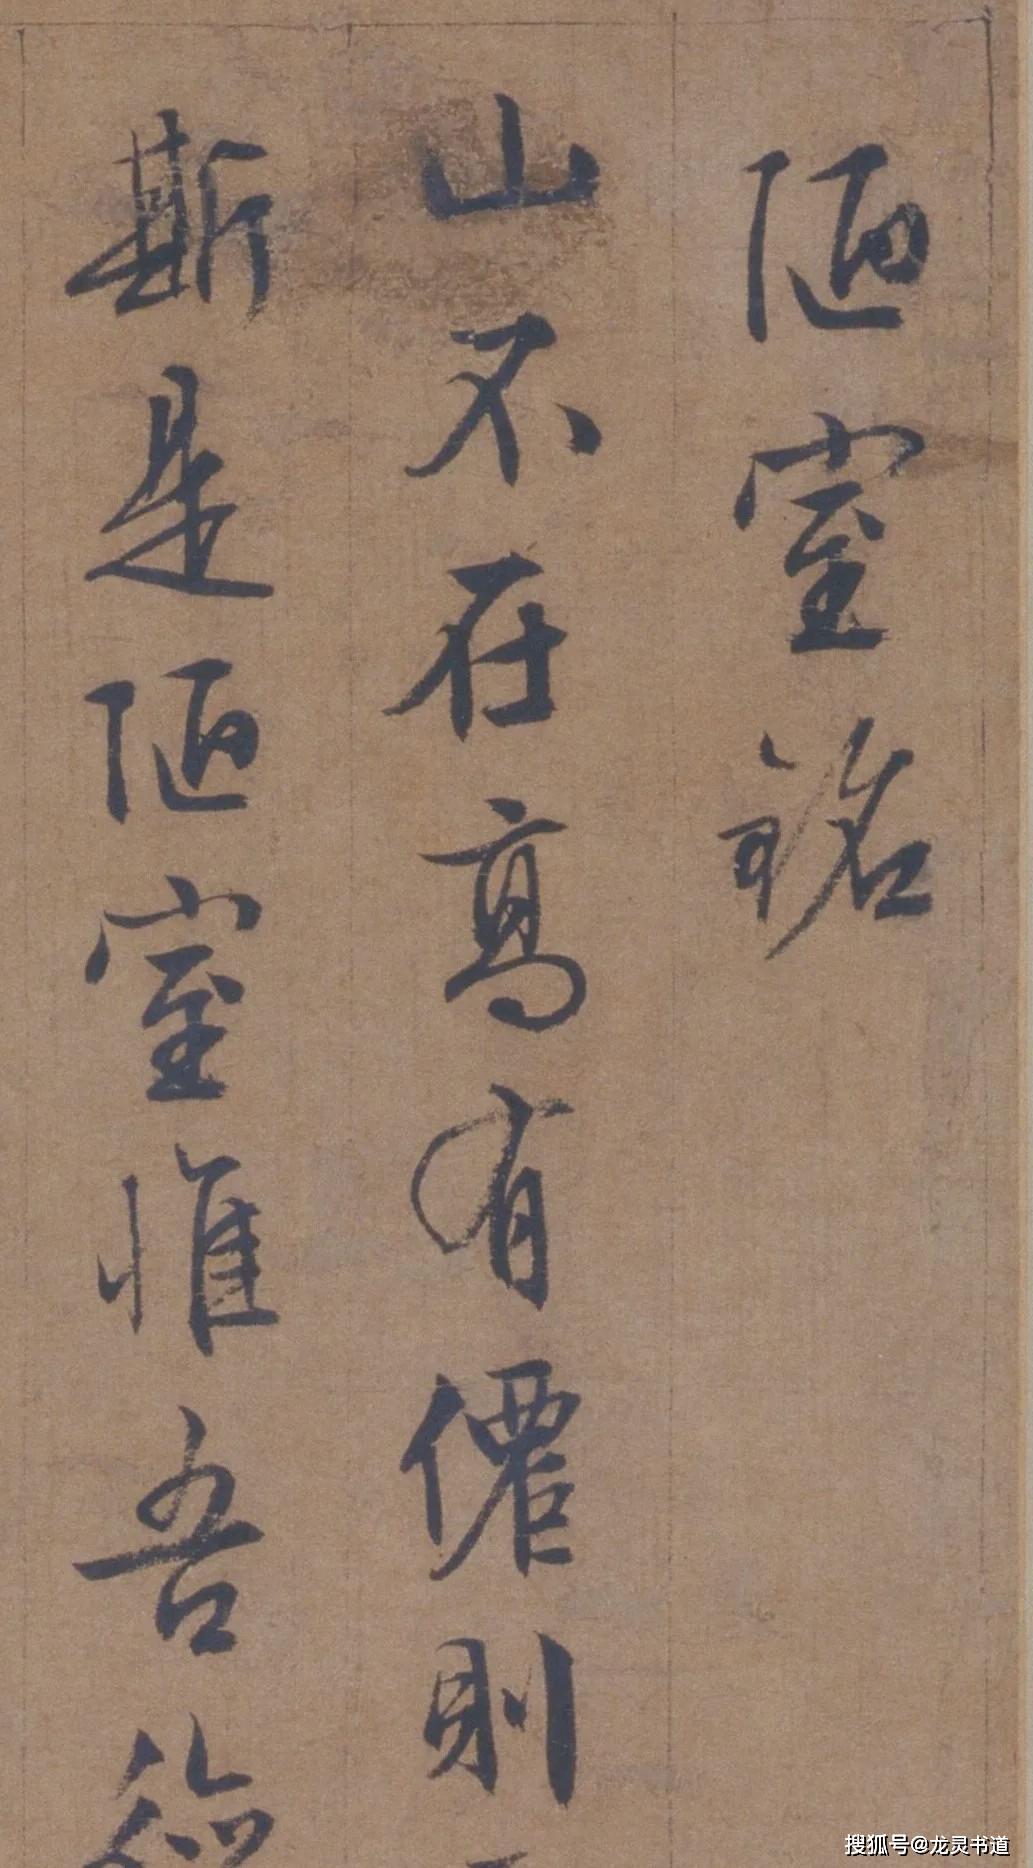 陋室銘
山不在高有僊則
斯是陋室惟吾
搜狐号@龙灵书道